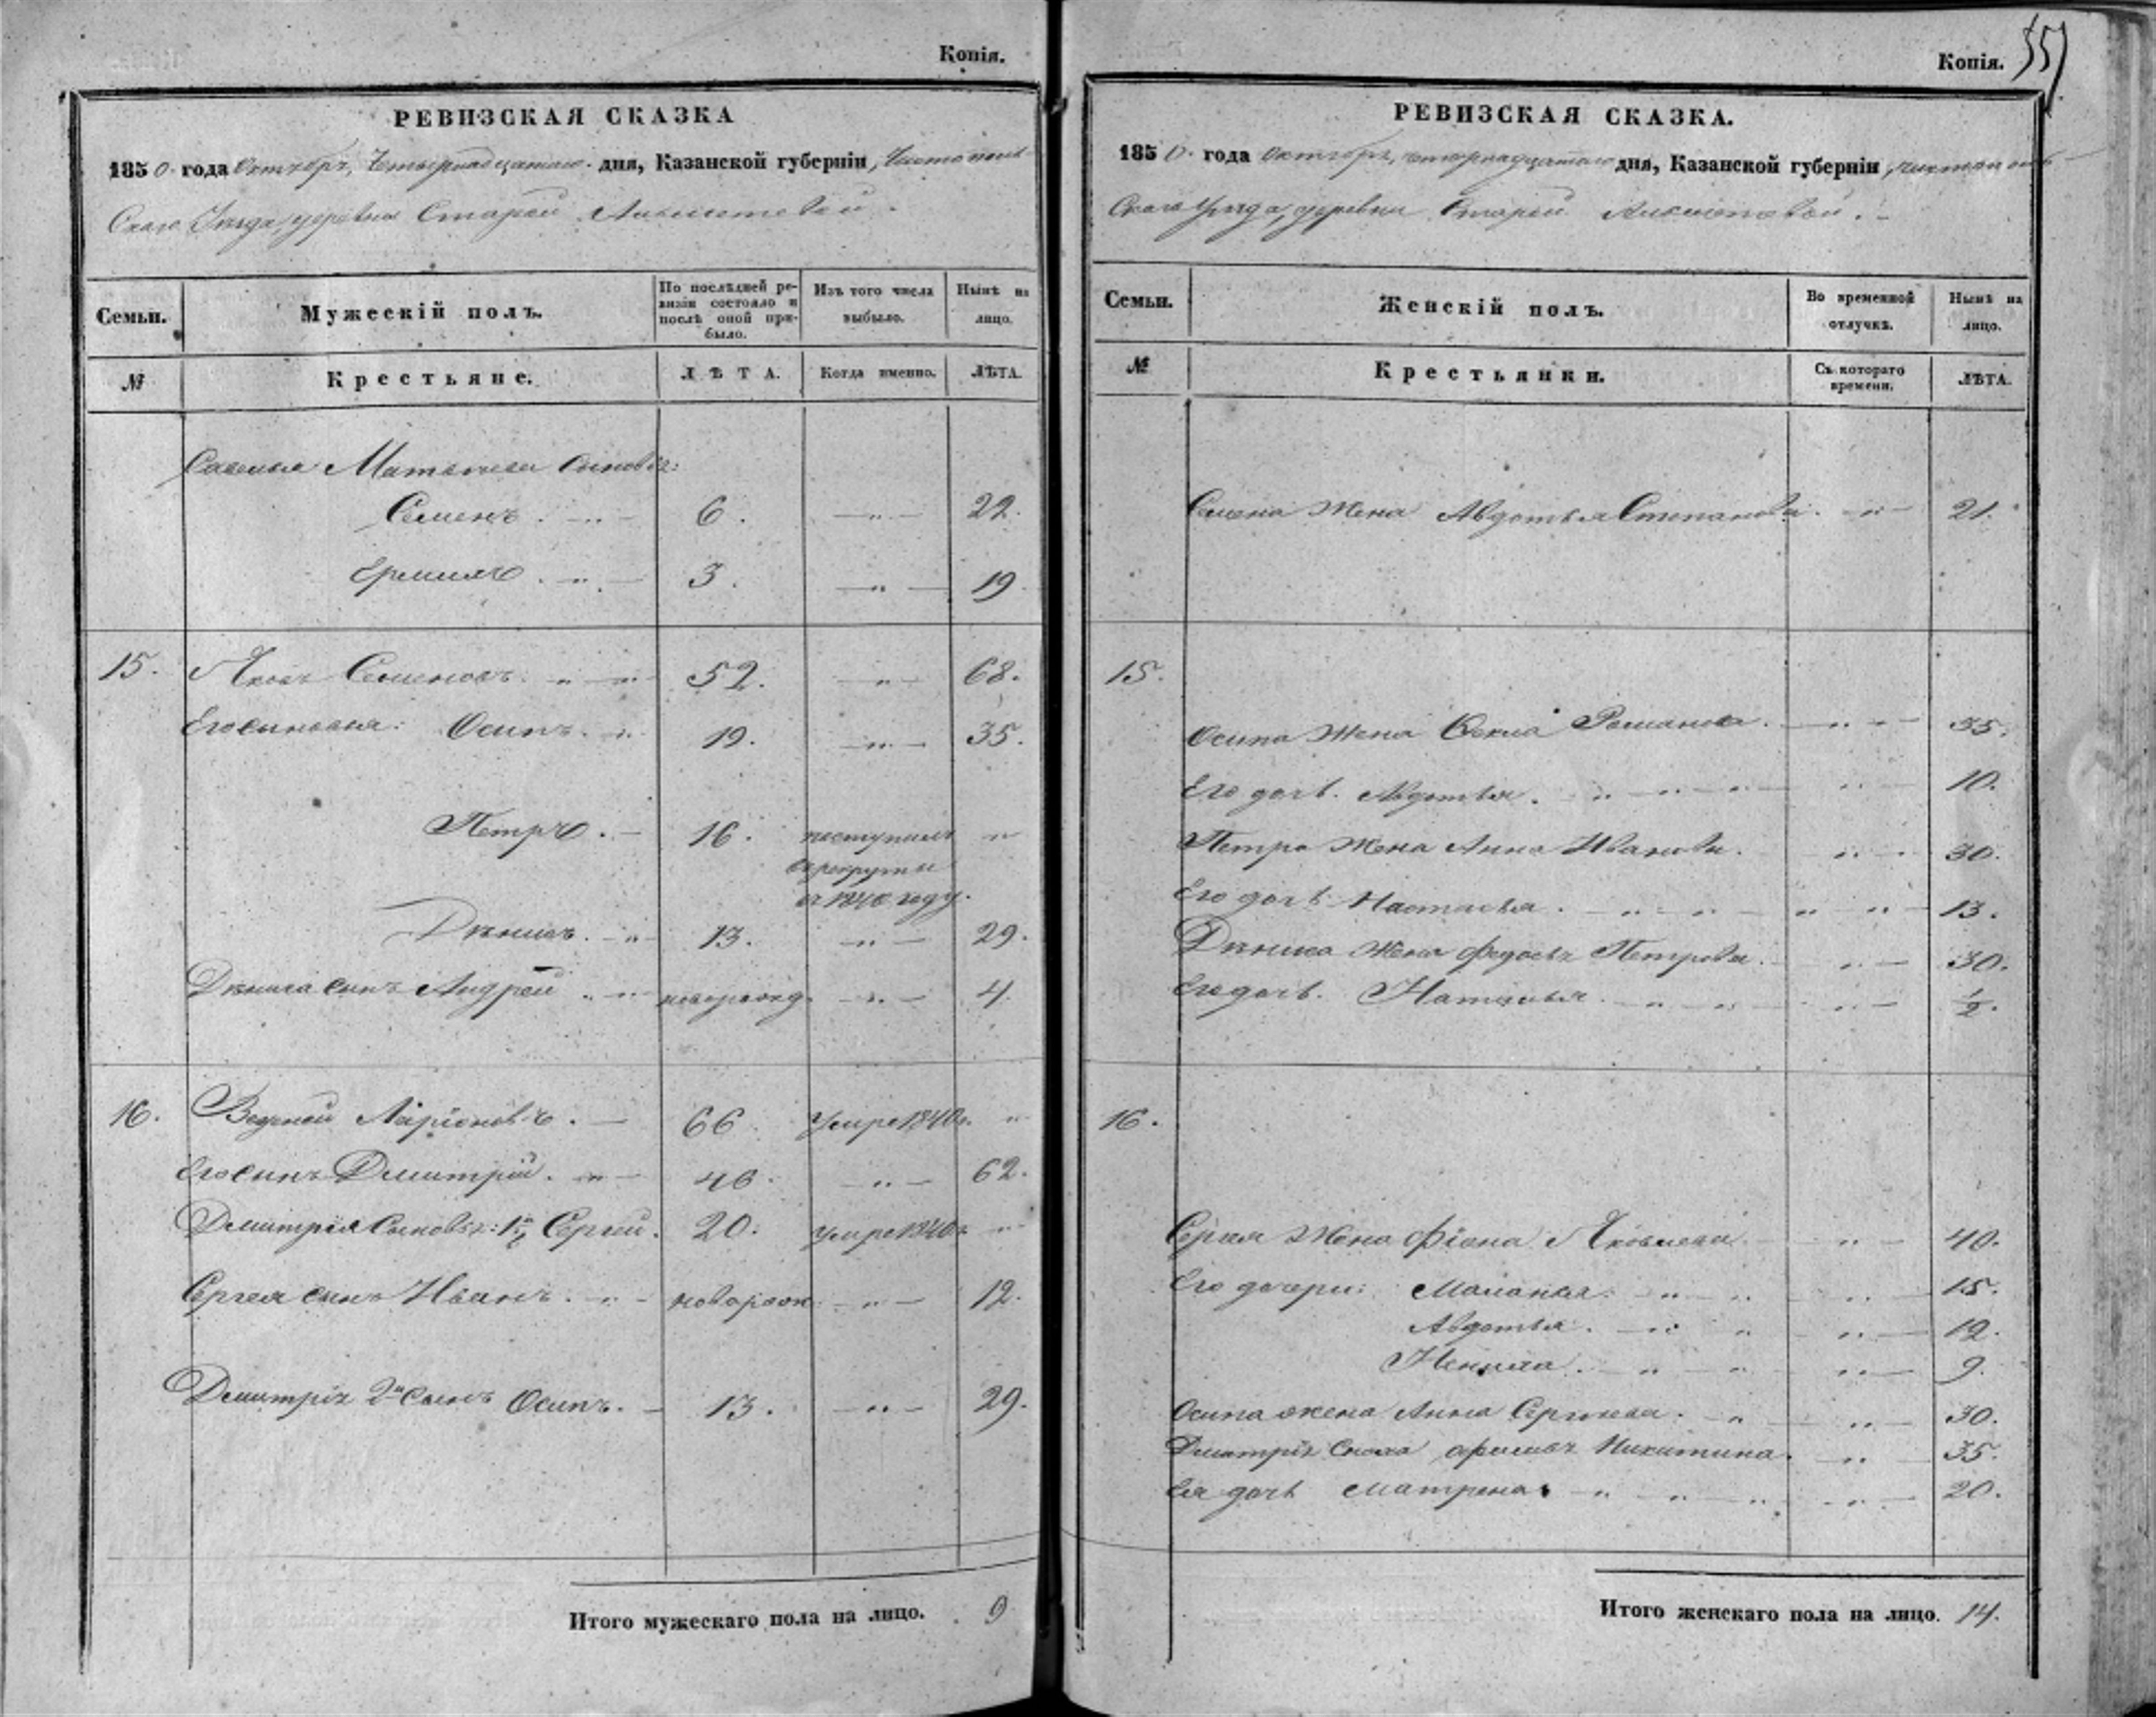 Копія.
РЕВИЗСКАЯ СКАЗКА
1850. года Октября, Четырнадцатаго дня, Казанской губерніи, Чистополь-
скаго Уезда, деревни Старой
Семьи.
Мужескій полъ.
По последней ре-
визіи состояло и
послѣ оной при-
было.
Изъ того числа
выбыло.
Нынѣ на
лицо.
№
Крестьяне.
ЛѢТА.
Когда именно.
ЛѢТА.
Савелья Матвеева сыновья:
Семенъ. 6. 22.
Ермилъ. 3. 19
15. Яковъ Семеновъ. 52. 68.
Его сыновья: Осипъ. 19. 35.
Петръ. 16. поступилъ
въ рекруты
въ 1840 году.
Денисъ. 13. 29.
Дениса сынъ Андрей новорожд. 4.
16. Ларіоновъ. 66. Умре 1840г.
Его сынъ Дмитрій. 46. 62.
Дмитрія сыновья: 1й Сергей. 20. Умре 1840г.
Сергея сынъ Иванъ. новорож. 12.
Дмитрія 2й сынъ Осипъ. 13. 29.
Итого мужескаго пола на лицо. 9
Копія. 55
РЕВИЗСКАЯ СКАЗКА.
1850. года Октября, четырнадцатаго дня, Казанской губерніи, Чистополь-
скаго Уезда, деревни Старой
Семьи.
Женскій полъ.
Во временной
отлучкѣ.
Нынѣ на
лицо.
№
Крестьянки.
Съ котораго
времени.
ЛѢТА.
Семена Жена Авдотья Степанова. 21.
15.
Осипа Жена Фекла Романова. 35.
Его дочь. Авдотья. 10.
Петра Жена Анна Иванова. 30.
Его дочь Настасья. 13.
Дениса Жена Федосья Петрова. 30.
Его дочь. Наталья. 1/2.
16.
Сергея Жена Фіона Яковлева 40.
Его дочери: Маланья. 15.
Авдотья. 12.
Ненила. 9.
Осипа жена Анна Сергеева. 30.
Дмитрія сноха Никитина. 35.
Ея дочь Матрена 20.
Итого женскаго пола на лицо. 14.